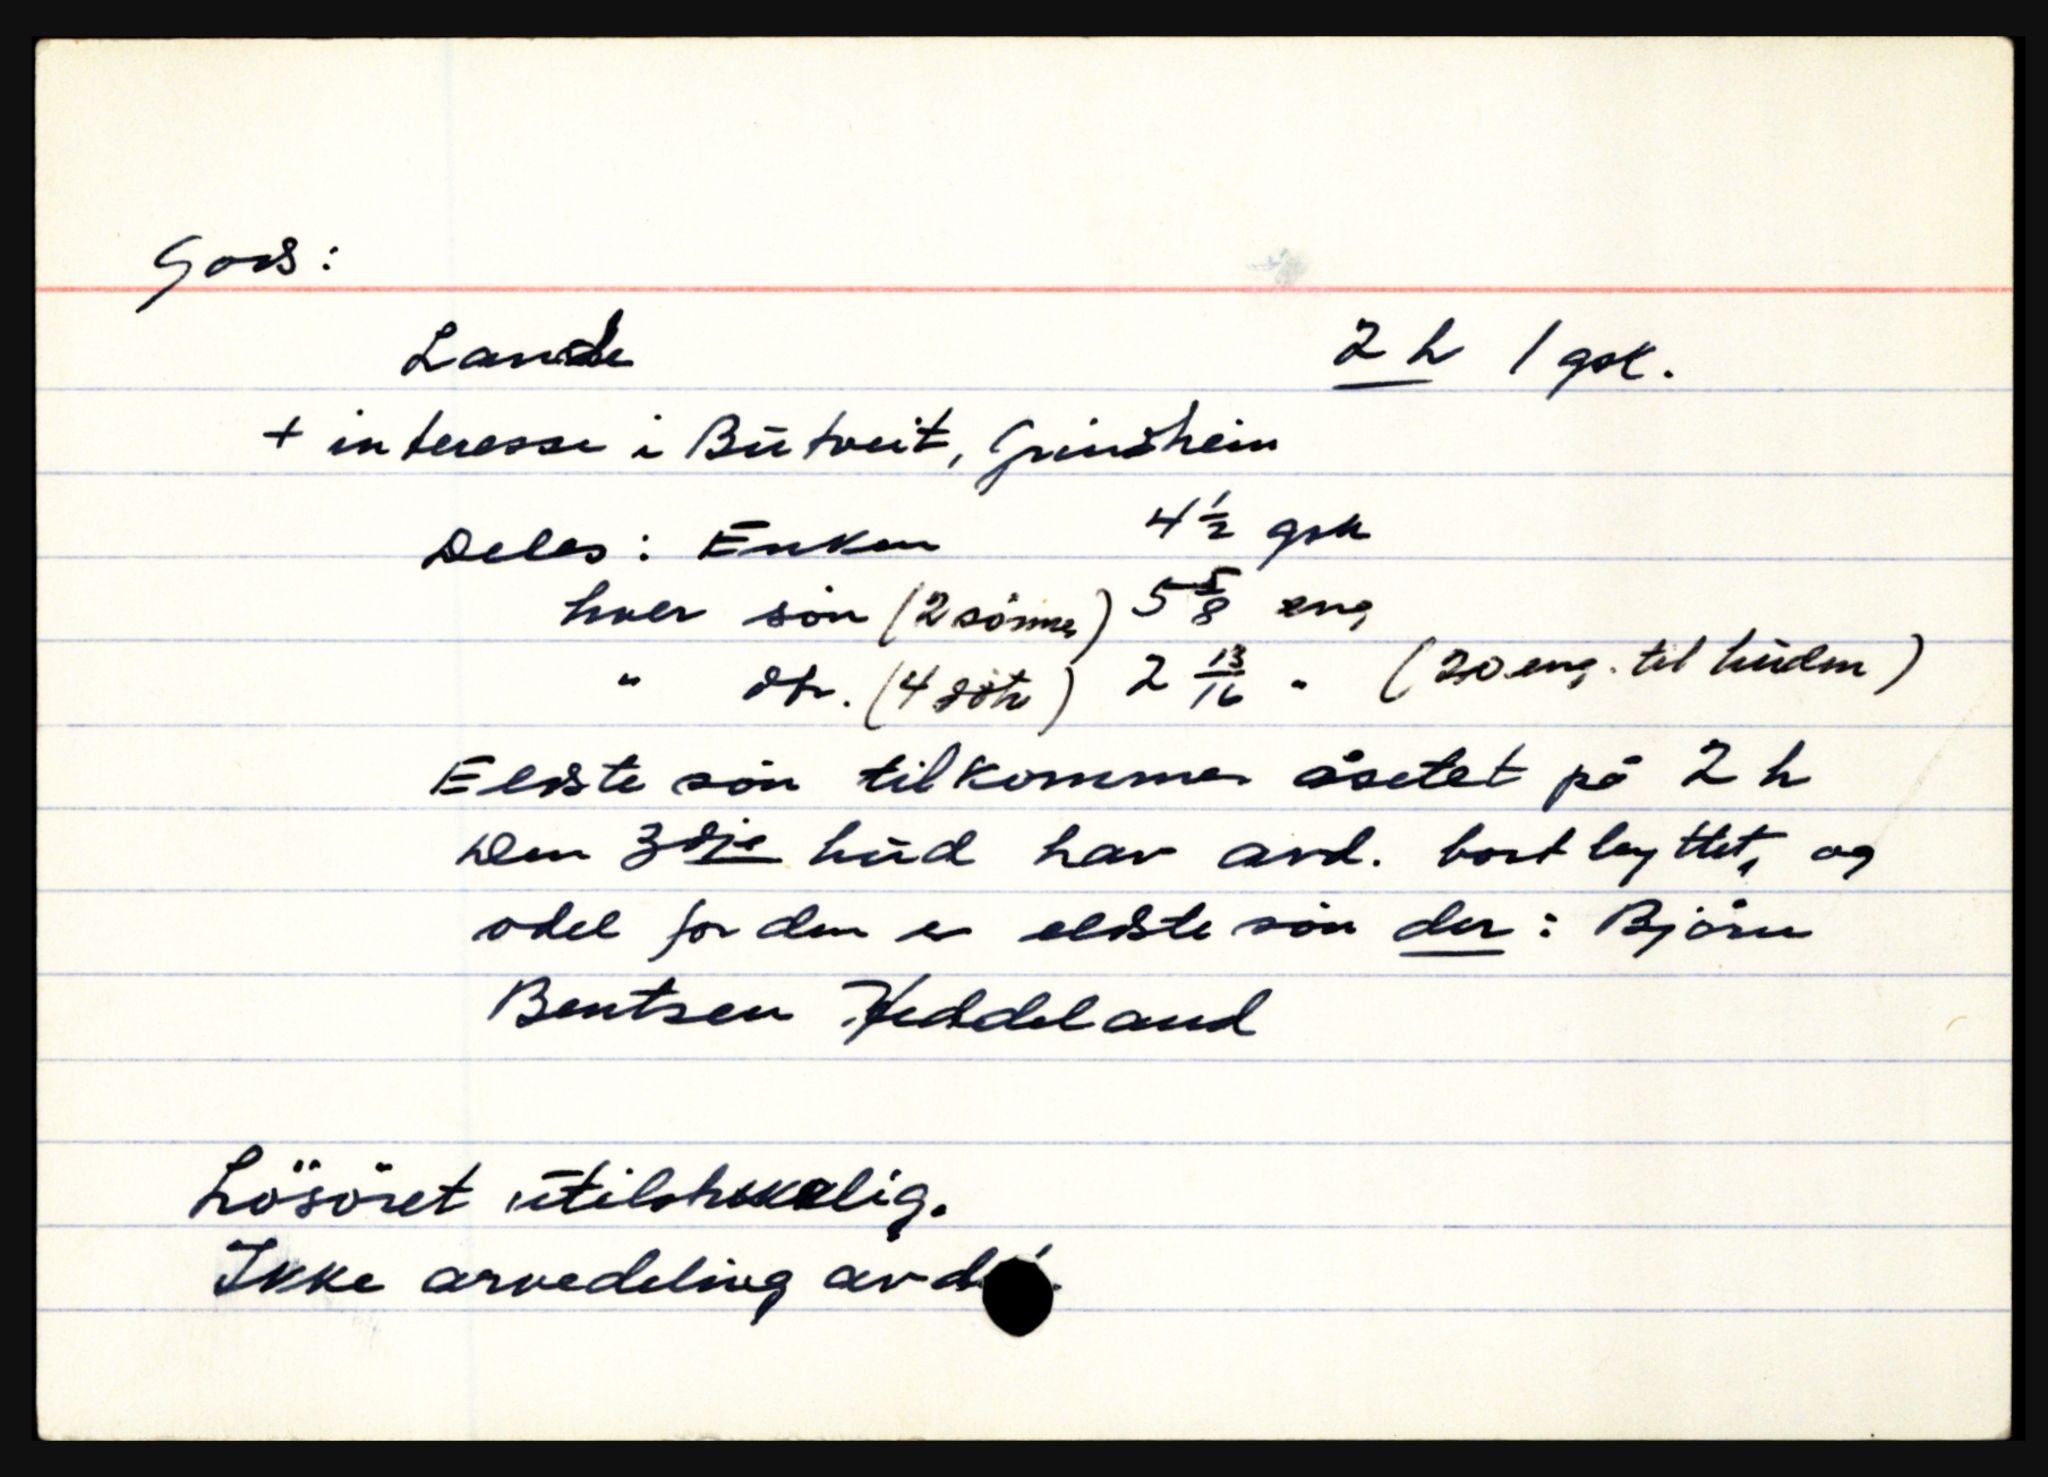 Gods:
Lande 2 h 1 gsk.
+ interesse i Butveit, Grindheim
Deles: Enken 4 1/2 gsk
hver sön (2 sönner) 5 5/8 eng
" dtr. (4 dötr) 2 13/16 " (20 eng. til huden)
Eldste sön tilkommer åsetet på 2 h
Den 3dje hud har avd. bortbyttet, og
odel for den er eldste sön der: Björn
Bentsen Heddeland
Lösöret utilstrekkelig.
Ikke arvedeling av